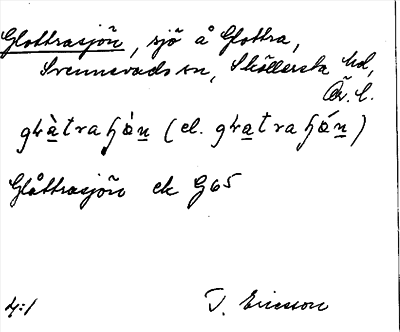 Glottrasjön, sjö å Glottra,
Svennevads sn, Sköllersta hd,
Ör. l.
glàtrahǿn (el. glatrahǿn)
Glåttrasjön ek G65
4:1 T. Ericsson